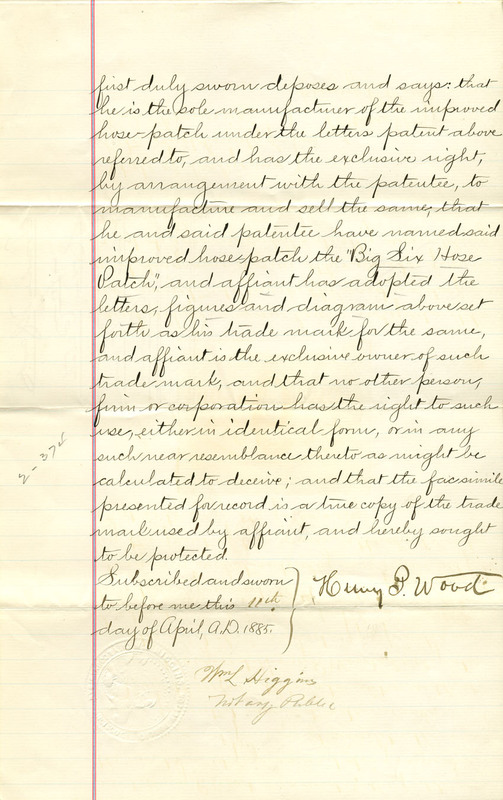 first duly sworn deposes and says: that
he is the sole manufacturer of the improved
hose-patch under the letters patent above
referred to, and has the exclusive right,
by arrangement with the patentee, to
manufacture and sell the same, that
he and said patentee have named said
improved hose-patch the "Big Six Hose
Patch", and affiant has adopted the
letters, figures and diagram above set
forth as his trade mark for the same,
and affiant is the exclusive owner of such
trade mark, and that no other person,
firm or corporation has the right to such
use, either in identical form, or in any
such near resemblance thereto as might be
calculated to deceive; and that the facsimile
presented for record is a true copy of the trade
mark used by affiant, and hereby sought
to be protected.
Subscribed and sworn
to before me this 11th
day of April, A.D. 1885.
Henry P. Wood
Wm L Higgins
Notary Public